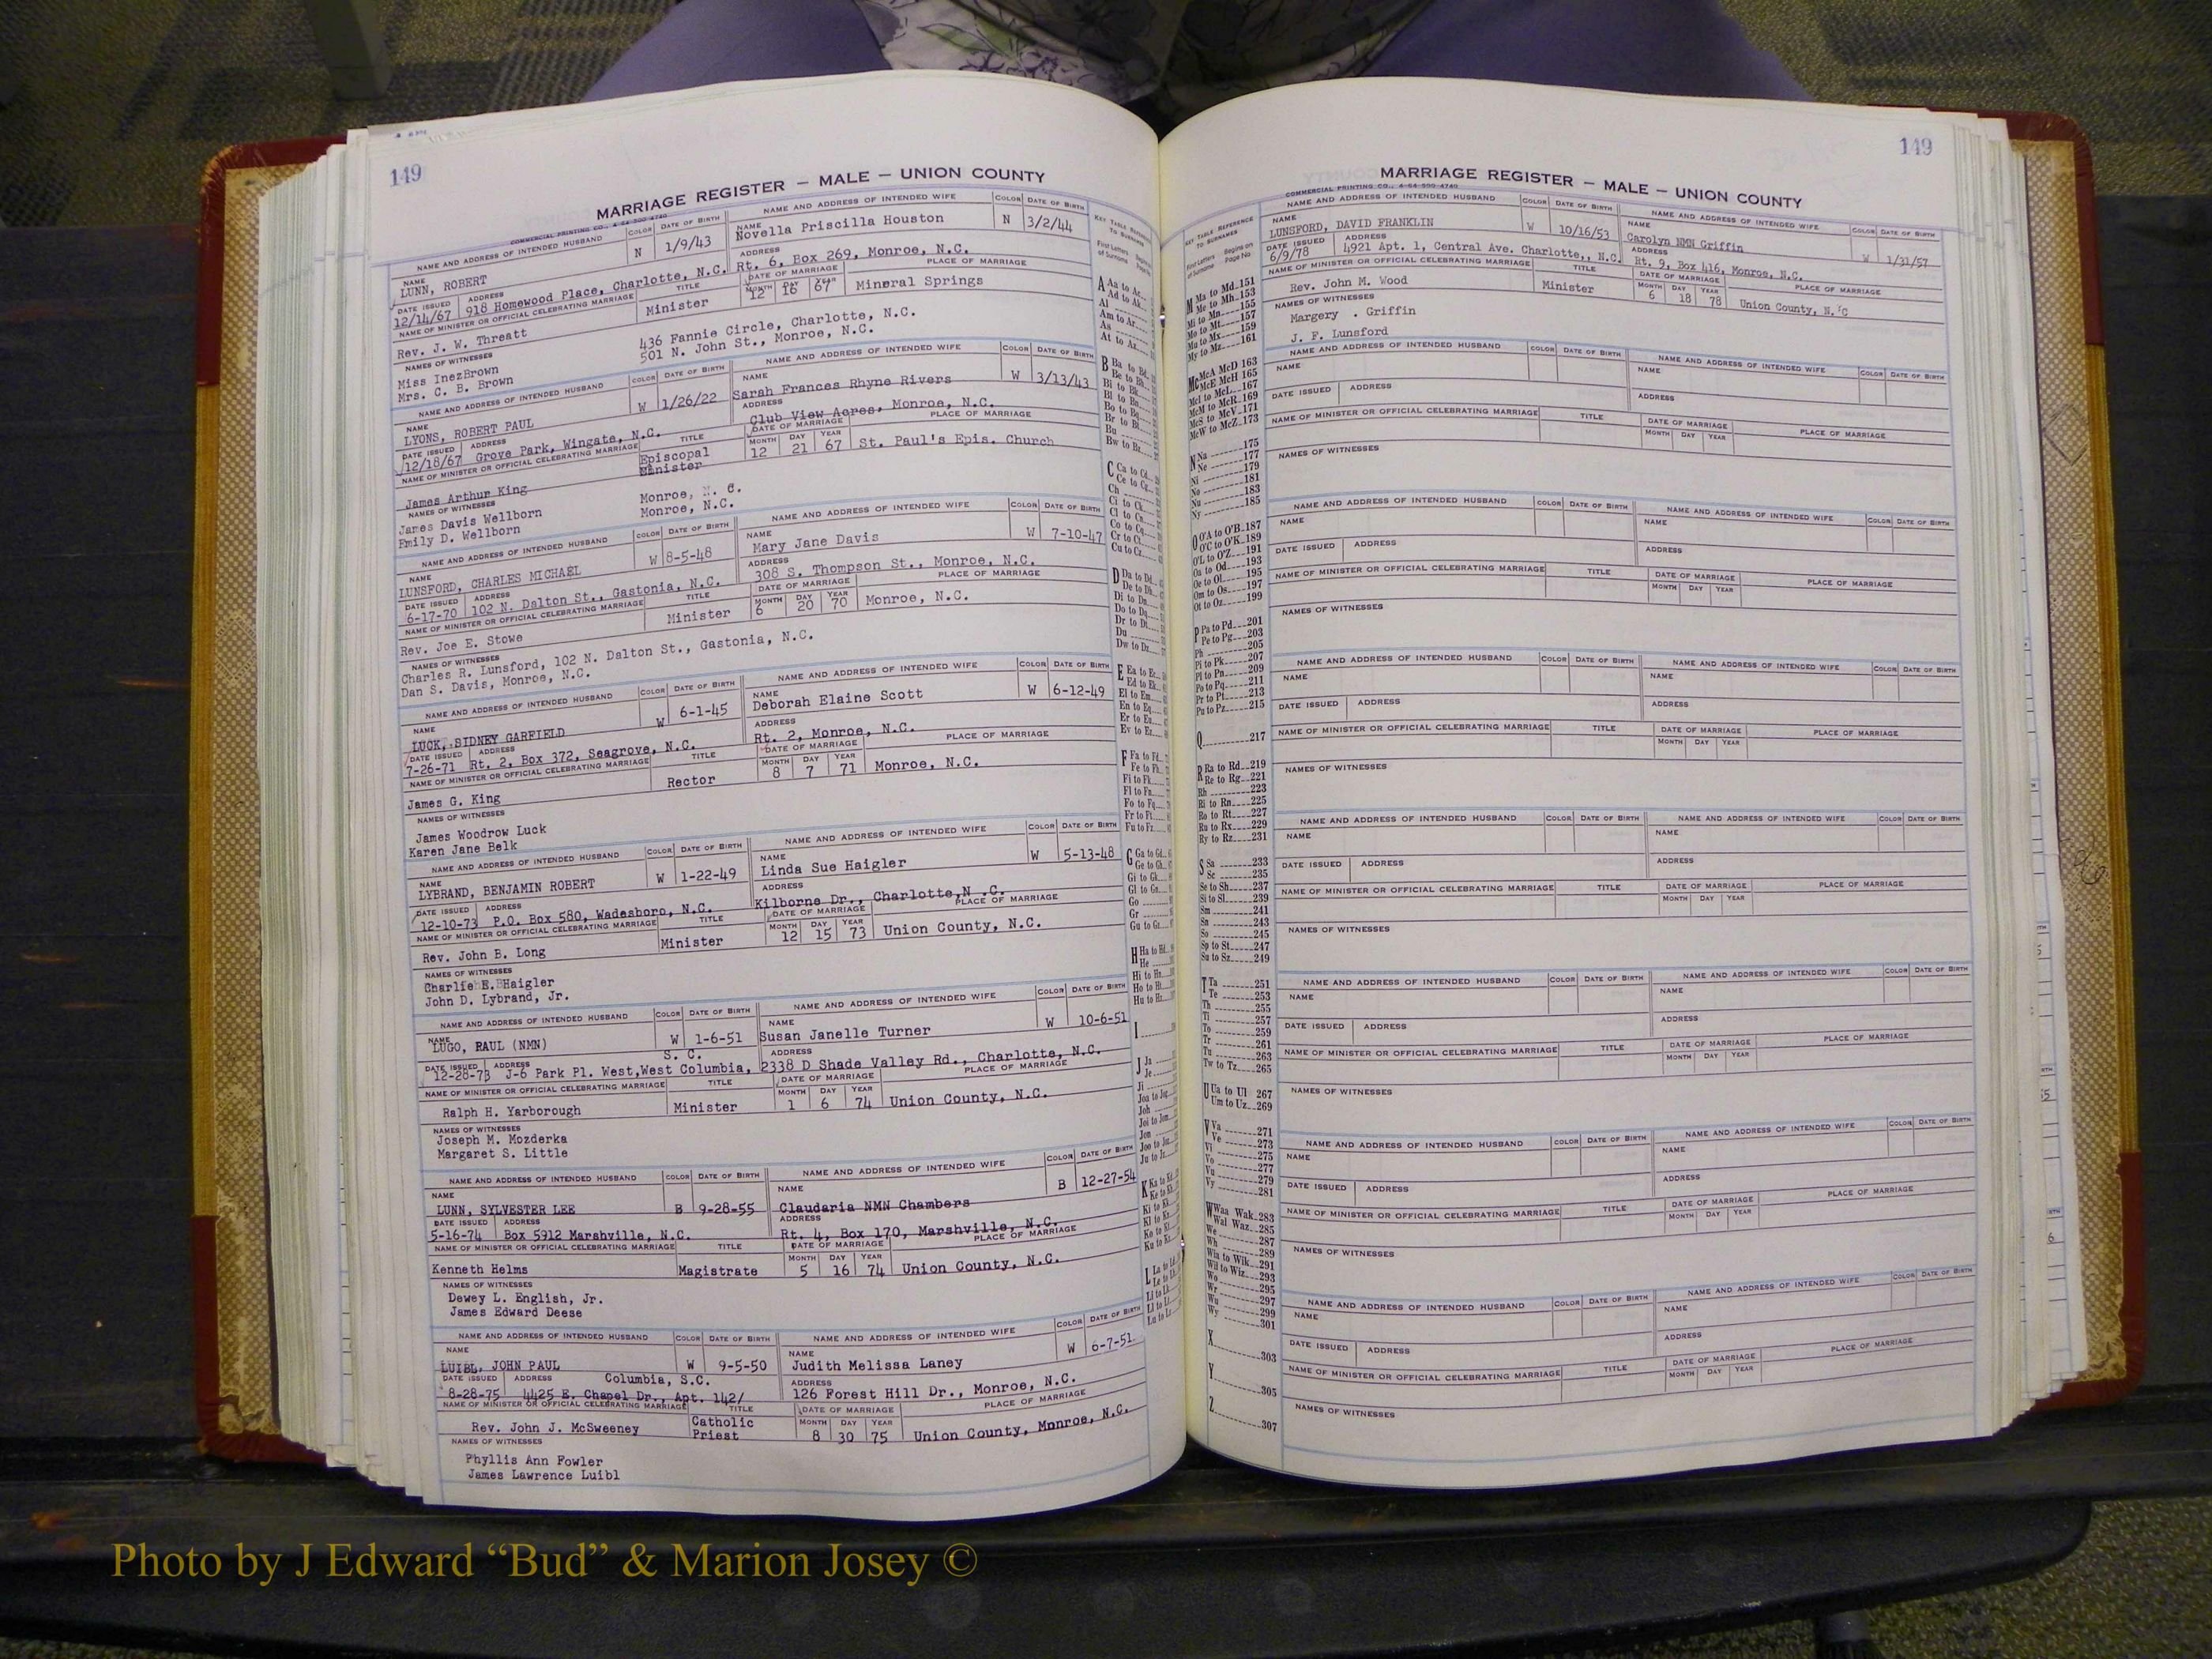 149
MARRIAGE REGISTER — MALE — UNION COUNTY
COMMERCIAL PRINTING CO., 4-64-500-4740
NAME AND ADDRESS OF INTENDED HUSBAND COLOR DATE OF BIRTH NAME AND ADDRESS OF INTENDED WIFE COLOR DATE OF BIRTH
NAME LUNN, ROBERT N 1/9/43 NAME Novella Priscilla Houston N 3/2/44
DATE ISSUED 12/14/67 ADDRESS 918 Homewood Place, Charlotte, N.C. ADDRESS Rt. 6, Box 269, Monroe, N.C.
NAME OF MINISTER OR OFFICIAL CELEBRATING MARRIAGE TITLE DATE OF MARRIAGE PLACE OF MARRIAGE
Rev. J. W. Threatt Minister MONTH 12 DAY 16 YEAR 67 Mineral Springs
NAMES OF WITNESSES
Miss InezBrown 436 Fannie Circle, Charlotte, N.C.
Mrs. C. B. Brown 501 N. John St., Monroe, N.C.
NAME AND ADDRESS OF INTENDED HUSBAND COLOR DATE OF BIRTH NAME AND ADDRESS OF INTENDED WIFE COLOR DATE OF BIRTH
NAME LYONS, ROBERT PAUL W 1/26/22 NAME Sarah Frances Rhyne Rivers W 3/13/43
DATE ISSUED 12/18/67 ADDRESS Grove Park, Wingate, N.C. ADDRESS Club View Acres, Monroe, N.C.
NAME OF MINISTER OR OFFICIAL CELEBRATING MARRIAGE TITLE DATE OF MARRIAGE PLACE OF MARRIAGE
James Arthur King Episcopal Minister MONTH 12 DAY 21 YEAR 67 St. Paul's Epis. Church
NAMES OF WITNESSES
James Davis Wellborn Monroe, N. C.
Emily D. Wellborn Monroe, N.C.
NAME AND ADDRESS OF INTENDED HUSBAND COLOR DATE OF BIRTH NAME AND ADDRESS OF INTENDED WIFE COLOR DATE OF BIRTH
NAME LUNSFORD, CHARLES MICHAEL W 8-5-48 NAME Mary Jane Davis W 7-10-47
DATE ISSUED 6-17-70 ADDRESS 102 N. Dalton St., Gastonia, N.C. ADDRESS 308 S. Thompson St., Monroe, N.C.
NAME OF MINISTER OR OFFICIAL CELEBRATING MARRIAGE TITLE DATE OF MARRIAGE PLACE OF MARRIAGE
Rev. Joe E. Stowe Minister MONTH 6 DAY 20 YEAR 70 Monroe, N.C.
NAMES OF WITNESSES
Charles R. Lunsford, 102 N. Dalton St., Gastonia, N.C.
Dan S. Davis, Monroe, N.C.
NAME AND ADDRESS OF INTENDED HUSBAND COLOR DATE OF BIRTH NAME AND ADDRESS OF INTENDED WIFE COLOR DATE OF BIRTH
NAME LUCK, SIDNEY GARFIELD W 6-1-45 NAME Deborah Elaine Scott W 6-12-49
DATE ISSUED 7-26-71 ADDRESS Rt. 2, Box 372, Seagrove, N.C. ADDRESS Rt. 2, Monroe, N.C.
NAME OF MINISTER OR OFFICIAL CELEBRATING MARRIAGE TITLE DATE OF MARRIAGE PLACE OF MARRIAGE
James G. King Rector MONTH 8 DAY 7 YEAR 71 Monroe, N.C.
NAMES OF WITNESSES
James Woodrow Luck
Karen Jane Belk
NAME AND ADDRESS OF INTENDED HUSBAND COLOR DATE OF BIRTH NAME AND ADDRESS OF INTENDED WIFE COLOR DATE OF BIRTH
NAME LYBRAND, BENJAMIN ROBERT W 1-22-49 NAME Linda Sue Haigler W 5-13-48
DATE ISSUED 12-10-73 ADDRESS P.O. Box 580, Wadesboro, N.C. ADDRESS Kilborne Dr., Charlotte,N .C.
NAME OF MINISTER OR OFFICIAL CELEBRATING MARRIAGE TITLE DATE OF MARRIAGE PLACE OF MARRIAGE
Rev. John B. Long Minister MONTH 12 DAY 15 YEAR 73 Union County, N.C.
NAMES OF WITNESSES
Charlie E. Haigler
John D. Lybrand, Jr.
NAME AND ADDRESS OF INTENDED HUSBAND COLOR DATE OF BIRTH NAME AND ADDRESS OF INTENDED WIFE COLOR DATE OF BIRTH
NAME LUGO, RAUL (NMN) W 1-6-51 NAME Susan Janelle Turner W 10-6-51
S. C.
DATE ISSUED 12-28-73 ADDRESS J-6 Park Pl. West,West Columbia, ADDRESS 2338 D Shade Valley Rd., Charlotte, N.C.
NAME OF MINISTER OR OFFICIAL CELEBRATING MARRIAGE TITLE DATE OF MARRIAGE PLACE OF MARRIAGE
Ralph H. Yarborough Minister MONTH 1 DAY 6 YEAR 74 Union County, N.C.
NAMES OF WITNESSES
Joseph M. Mozderka
Margaret S. Little
NAME AND ADDRESS OF INTENDED HUSBAND COLOR DATE OF BIRTH NAME AND ADDRESS OF INTENDED WIFE COLOR DATE OF BIRTH
NAME LUNN, SYLVESTER LEE B 9-28-55 NAME Claudaria NMN Chambers B 12-27-54
DATE ISSUED 5-16-74 ADDRESS Box 5912 Marshville, N.C. ADDRESS Rt. 4, Box 170, Marshville, N.C.
NAME OF MINISTER OR OFFICIAL CELEBRATING MARRIAGE TITLE DATE OF MARRIAGE PLACE OF MARRIAGE
Kenneth Helms Magistrate MONTH 5 DAY 16 YEAR 74 Union County, N.C.
NAMES OF WITNESSES
Dewey L. English, Jr.
James Edward Deese
NAME AND ADDRESS OF INTENDED HUSBAND COLOR DATE OF BIRTH NAME AND ADDRESS OF INTENDED WIFE COLOR DATE OF BIRTH
NAME LUIBL, JOHN PAUL W 9-5-50 NAME Judith Melissa Laney W 6-7-51
Columbia, S.C.
DATE ISSUED 8-28-75 ADDRESS 4425 E. Chapel Dr., Apt. 142/ ADDRESS 126 Forest Hill Dr., Monroe, N.C.
NAME OF MINISTER OR OFFICIAL CELEBRATING MARRIAGE TITLE DATE OF MARRIAGE PLACE OF MARRIAGE
Rev. John J. McSweeney Catholic Priest MONTH 8 DAY 30 YEAR 75 Union County, Mnnroe, N.C.
NAMES OF WITNESSES
Phyllis Ann Fowler
James Lawrence Luibl
149
MARRIAGE REGISTER — MALE — UNION COUNTY
COMMERCIAL PRINTING CO., 4-64-500-4740
NAME AND ADDRESS OF INTENDED HUSBAND COLOR DATE OF BIRTH NAME AND ADDRESS OF INTENDED WIFE COLOR DATE OF BIRTH
NAME LUNSFORD, DAVID FRANKLIN W 10/16/53 NAME Carolyn NMN Griffin W 1/31/57
DATE ISSUED 6/9/78 ADDRESS 4921 Apt. 1, Central Ave. Charlotte,, N.C. ADDRESS Rt. 9, Box 416, Monroe, N.C.
NAME OF MINISTER OR OFFICIAL CELEBRATING MARRIAGE TITLE DATE OF MARRIAGE PLACE OF MARRIAGE
Rev. John M. Wood Minister MONTH 6 DAY 18 YEAR 78 Union County, N.C
NAMES OF WITNESSES
Margery . Griffin
J. F. Lunsford
KEY TABLE REFERENCE TO SURNAMES
First Letters of Surname Begins on Page No
M Ma to Md 151
Me to Mh 153
Mi to Mn 155
Mo to Mt 157
Mu to Mx 159
My to Mz 161
Mc McA McD 163
McE McH 165
McI to McL 167
McM to McR 169
McS to McV 171
McW to McZ 173
N Na 175
Ne 177
Ni 179
No 181
Nu 183
Ny 185
O O'A to O'B 187
O'C to O'K 189
O'L to O'Z 191
Oa to Od 193
Oe to Ol 195
Om to Os 197
Ot to Oz 199
P Pa to Pd 201
Pe to Pg 203
Ph 205
Pi to Pk 207
Pl to Pn 209
Po to Pq 211
Pr to Pt 213
Pu to Pz 215
Q 217
R Ra to Rd 219
Re to Rg 221
Rh 223
Ri to Rn 225
Ro to Rt 227
Ru to Rx 229
Ry to Rz 231
S Sa 233
Sc 235
Se to Sh 237
Si to Sl 239
Sm 241
Sn 243
So 245
Sp to St 247
Su to Sz 249
T Ta 251
Te 253
Th 255
Ti 257
To 259
Tr 261
Tu 263
Tw to Tz 265
U Ua to Ul 267
Um to Uz 269
V Va 271
Ve 273
Vi 275
Vo 277
Vu 279
Vy 281
W Waa Wak 283
Wal Waz 285
We 287
Wh 289
Wia to Wik 291
Wil to Wiz 293
Wo 295
Wr 297
Wu 299
Wy 301
X 303
Y 305
Z 307
Photo by J Edward “Bud” & Marion Josey ©